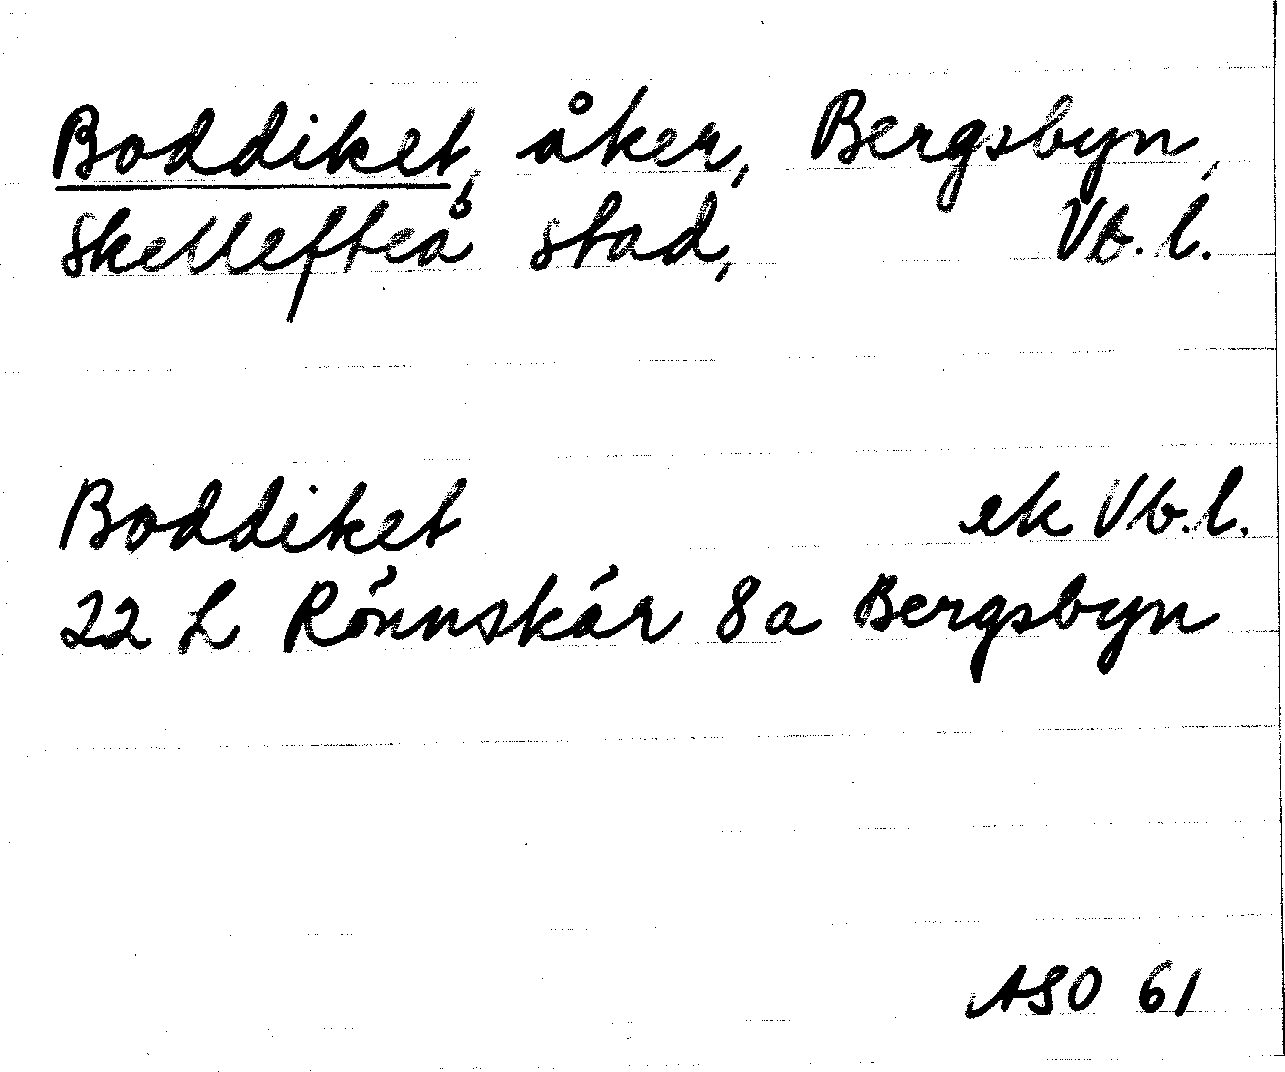 Boddiket, åker, Bergsbyn,
Skellefteå stad, Vb. l.
Boddiket ek Vb. l.
22 L Rönnskär 8a Bergsbyn
ASO 61